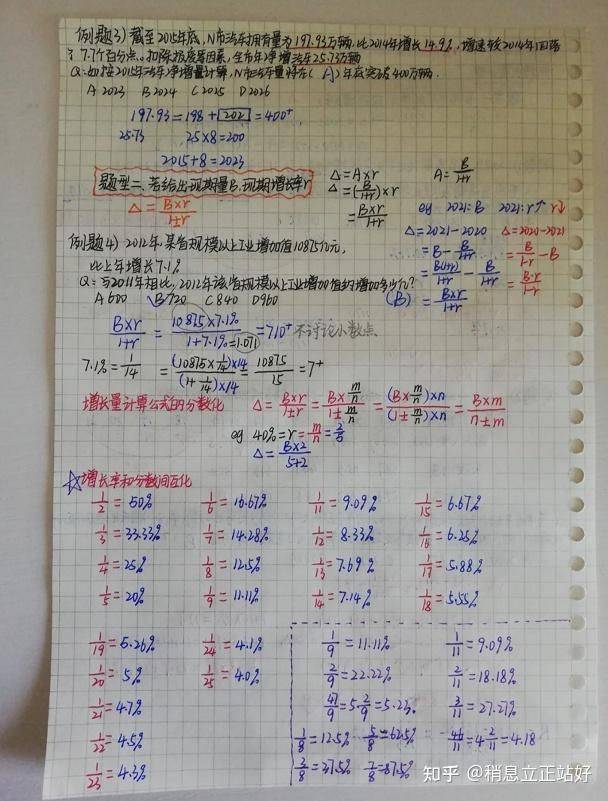 例题3) 截至2015年底,N市汽车拥有量为197.93万辆,比2014年增长14.9%,增速较2014年回落
了7.7个百分点,扣除报废等因素,全市年净增汽车25.73万辆
Q:如按2015年汽车净增量计算,N市汽车量将在( A )年底突破400万辆.
A 2023 B 2024 C 2025 D 2026
197.93 = 198 + 202 = 400+
25.73 25×8=200
2015+8=2023
题型二、若给出现期量B,现期增长率r
Δ = B×r/1±r
Δ = A×r A = B/1+r
Δ = (B/1+r)×r
= B×r/1+r
eg 2021:B 2021:r↑ r↓
Δ=2021-2020 Δ=2020-2021
= B - B/1+r = B/1-r - B
= B(1+r)/1+r - B/1+r = B·r/1-r
= B×r/1+r
例题4) 2012年,某省规模以上工业增加值10875亿元,
比上年增长7.1%
Q:与2011年相比,2012年该省规模以上工业增加值约增加多少亿? (B)
A 600 B 720 C 840 D 960
B×r/1+r = 10875×7.1%/1+7.1%=1.071 = 710+ 不讨论小数点
7.1%=1/14 = (10875×1/14)×14/(1+1/14)×14 = 10875/15 = 7+
增长量计算公式的分数化 Δ = B×r/1±r = B×m/n/1±m/n = (B×m/n)×n/(1±m/n)×n = B×m/n±m
eg 40%=r=m/n=2/5
Δ = B×2/5+2
☆增长率和分数间互化
1/2=50% 1/6=16.67% 1/11=9.09% 1/15=6.67%
1/3=33.33% 1/7=14.28% 1/12=8.33% 1/16=6.25%
1/4=25% 1/8=12.5% 1/13=7.69% 1/17=5.88%
1/5=20% 1/9=11.11% 1/14=7.14% 1/18=5.55%
1/19=5.26% 1/24=4.1%
1/20=5% 1/25=4.0%
1/21=4.7%
1/22=4.5%
1/23=4.3%
1/9=11.11% 1/11=9.09%
2/9=22.22% 2/11=18.18%
47/9=5 2/9=5.23. 3/11=27.27%
1/8=12.5% 5/8=62.5% 46/11=4 2/11=4.18
3/8=37.5% 7/8=87.5%
知乎 @稍息立正站好